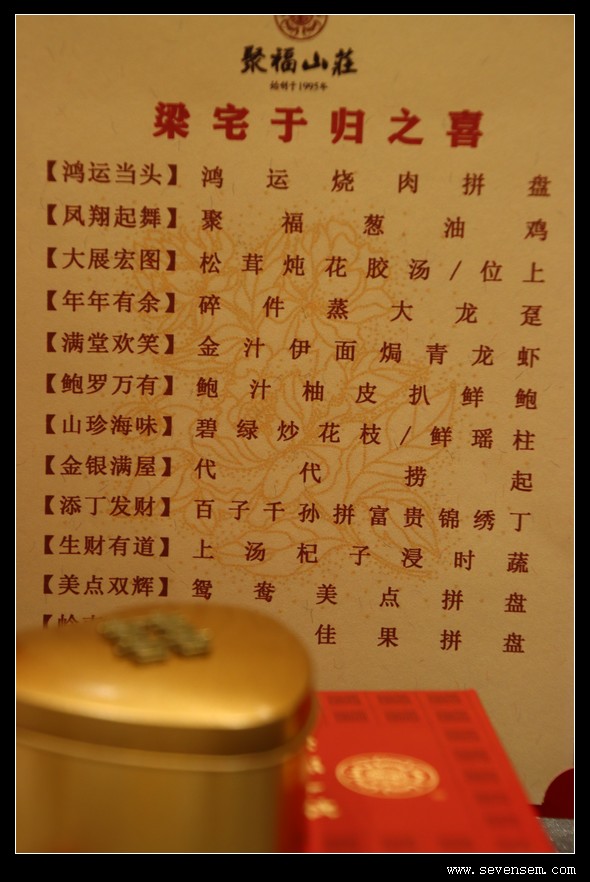 聚福山莊
始创于1995年
梁宅于归之喜
【鸿运当头】 鸿运烧肉拼盘
【凤翔起舞】 聚福葱油鸡
【大展宏图】 松茸炖花胶汤/位上
【年年有余】 碎件蒸大龙趸
【满堂欢笑】 金汁伊面焗青龙虾
【鲍罗万有】 鲍汁柚皮扒鲜鲍
【山珍海味】 碧绿炒花枝/鲜瑶柱
【金银满屋】 代代捞起
【添丁发财】 百子千孙拼富贵锦绣丁
【生财有道】 上汤杞子浸时蔬
【美点双辉】 鸳鸯美点拼盘
佳果拼盘
www.sevensem.com